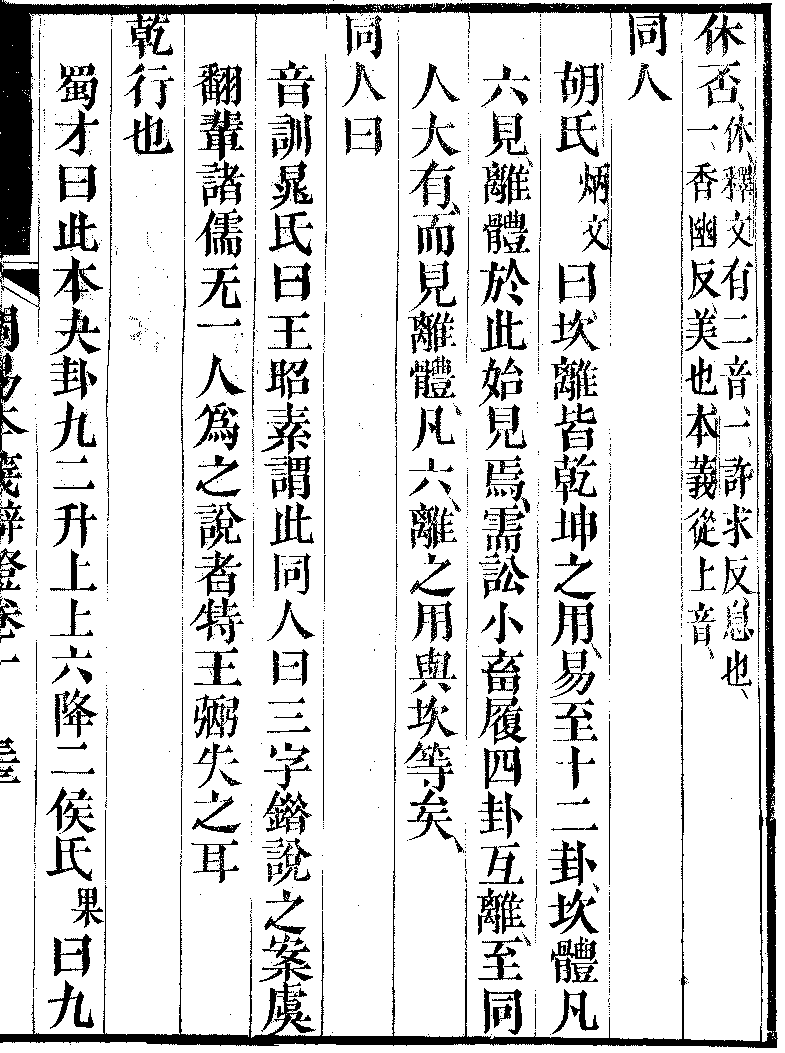 休否休釋文有二音一許求反息也
一香幽反美也本義從上音
同人
胡氏炳文曰坎離皆乾坤之用易至十二卦坎體凡
六見離體於此始見焉需訟小畜履四卦互離至同
人大有而見離體凡六離之用與坎等矣
同人曰
音訓晁氏曰王昭素謂此同人曰三字錯說之案虞
翻輩諸儒无一人爲之說者特王弼失之耳
乾行也
蜀才曰此本夬卦九二升上上六降二侯氏果曰九
周易本義辯證卷一